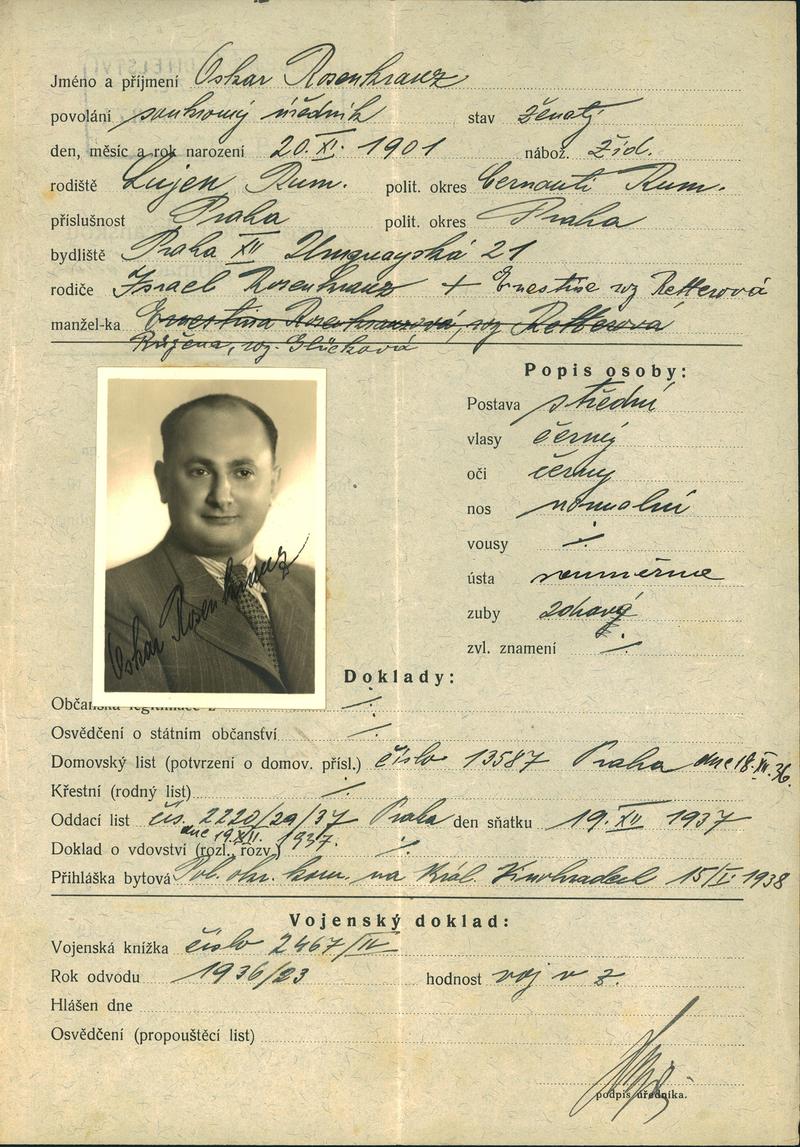 Jméno a příjmení Oskar Rosenkranz
povolání soukromý úředník stav ženatý
den, měsíc a rok narození 20. XI. 1901 nábož. žid.
rodiště Lujen Rum. polit. okres Cernauti Rum.
příslušnost Praha polit. okres Praha
bydliště Praha XII Uruguayská 21
rodiče Israel Rosenkranz + Ernestine roz Retterová
manžel-ka Ernestina Rosenkranzová, roz Retterová
Růžena, roz. Glücková
Popis osoby:
Postava střední
vlasy černý
oči černy
nos normální
vousy ·/·
ústa souměrné
zuby zdravý
zvl. znamení ·/·
Oskar Rosenkranz
Doklady:
Občanská legitimace ·/·
Osvědčení o státním občanství ·/·
Domovský list (potvrzení o domov. přísl.) číslo 13587 Praha dne 18. 36.
Křestní (rodný list) ·/·
Oddací list čís. 2220/29/37 Praha den sňatku 19. XII 1937
dne 19. XII. 1937.
Doklad o vdovství (rozl., rozv.) ·/·
Přihláška bytová Pol. okr. kom. na Král. Vinohradech 15/I 1938
Vojenský doklad:
Vojenská knížka číslo 2467/IV
Rok odvodu 1936/23 hodnost voj v z.
Hlášen dne
Osvědčení (propouštěcí list)
podpis úředníka.